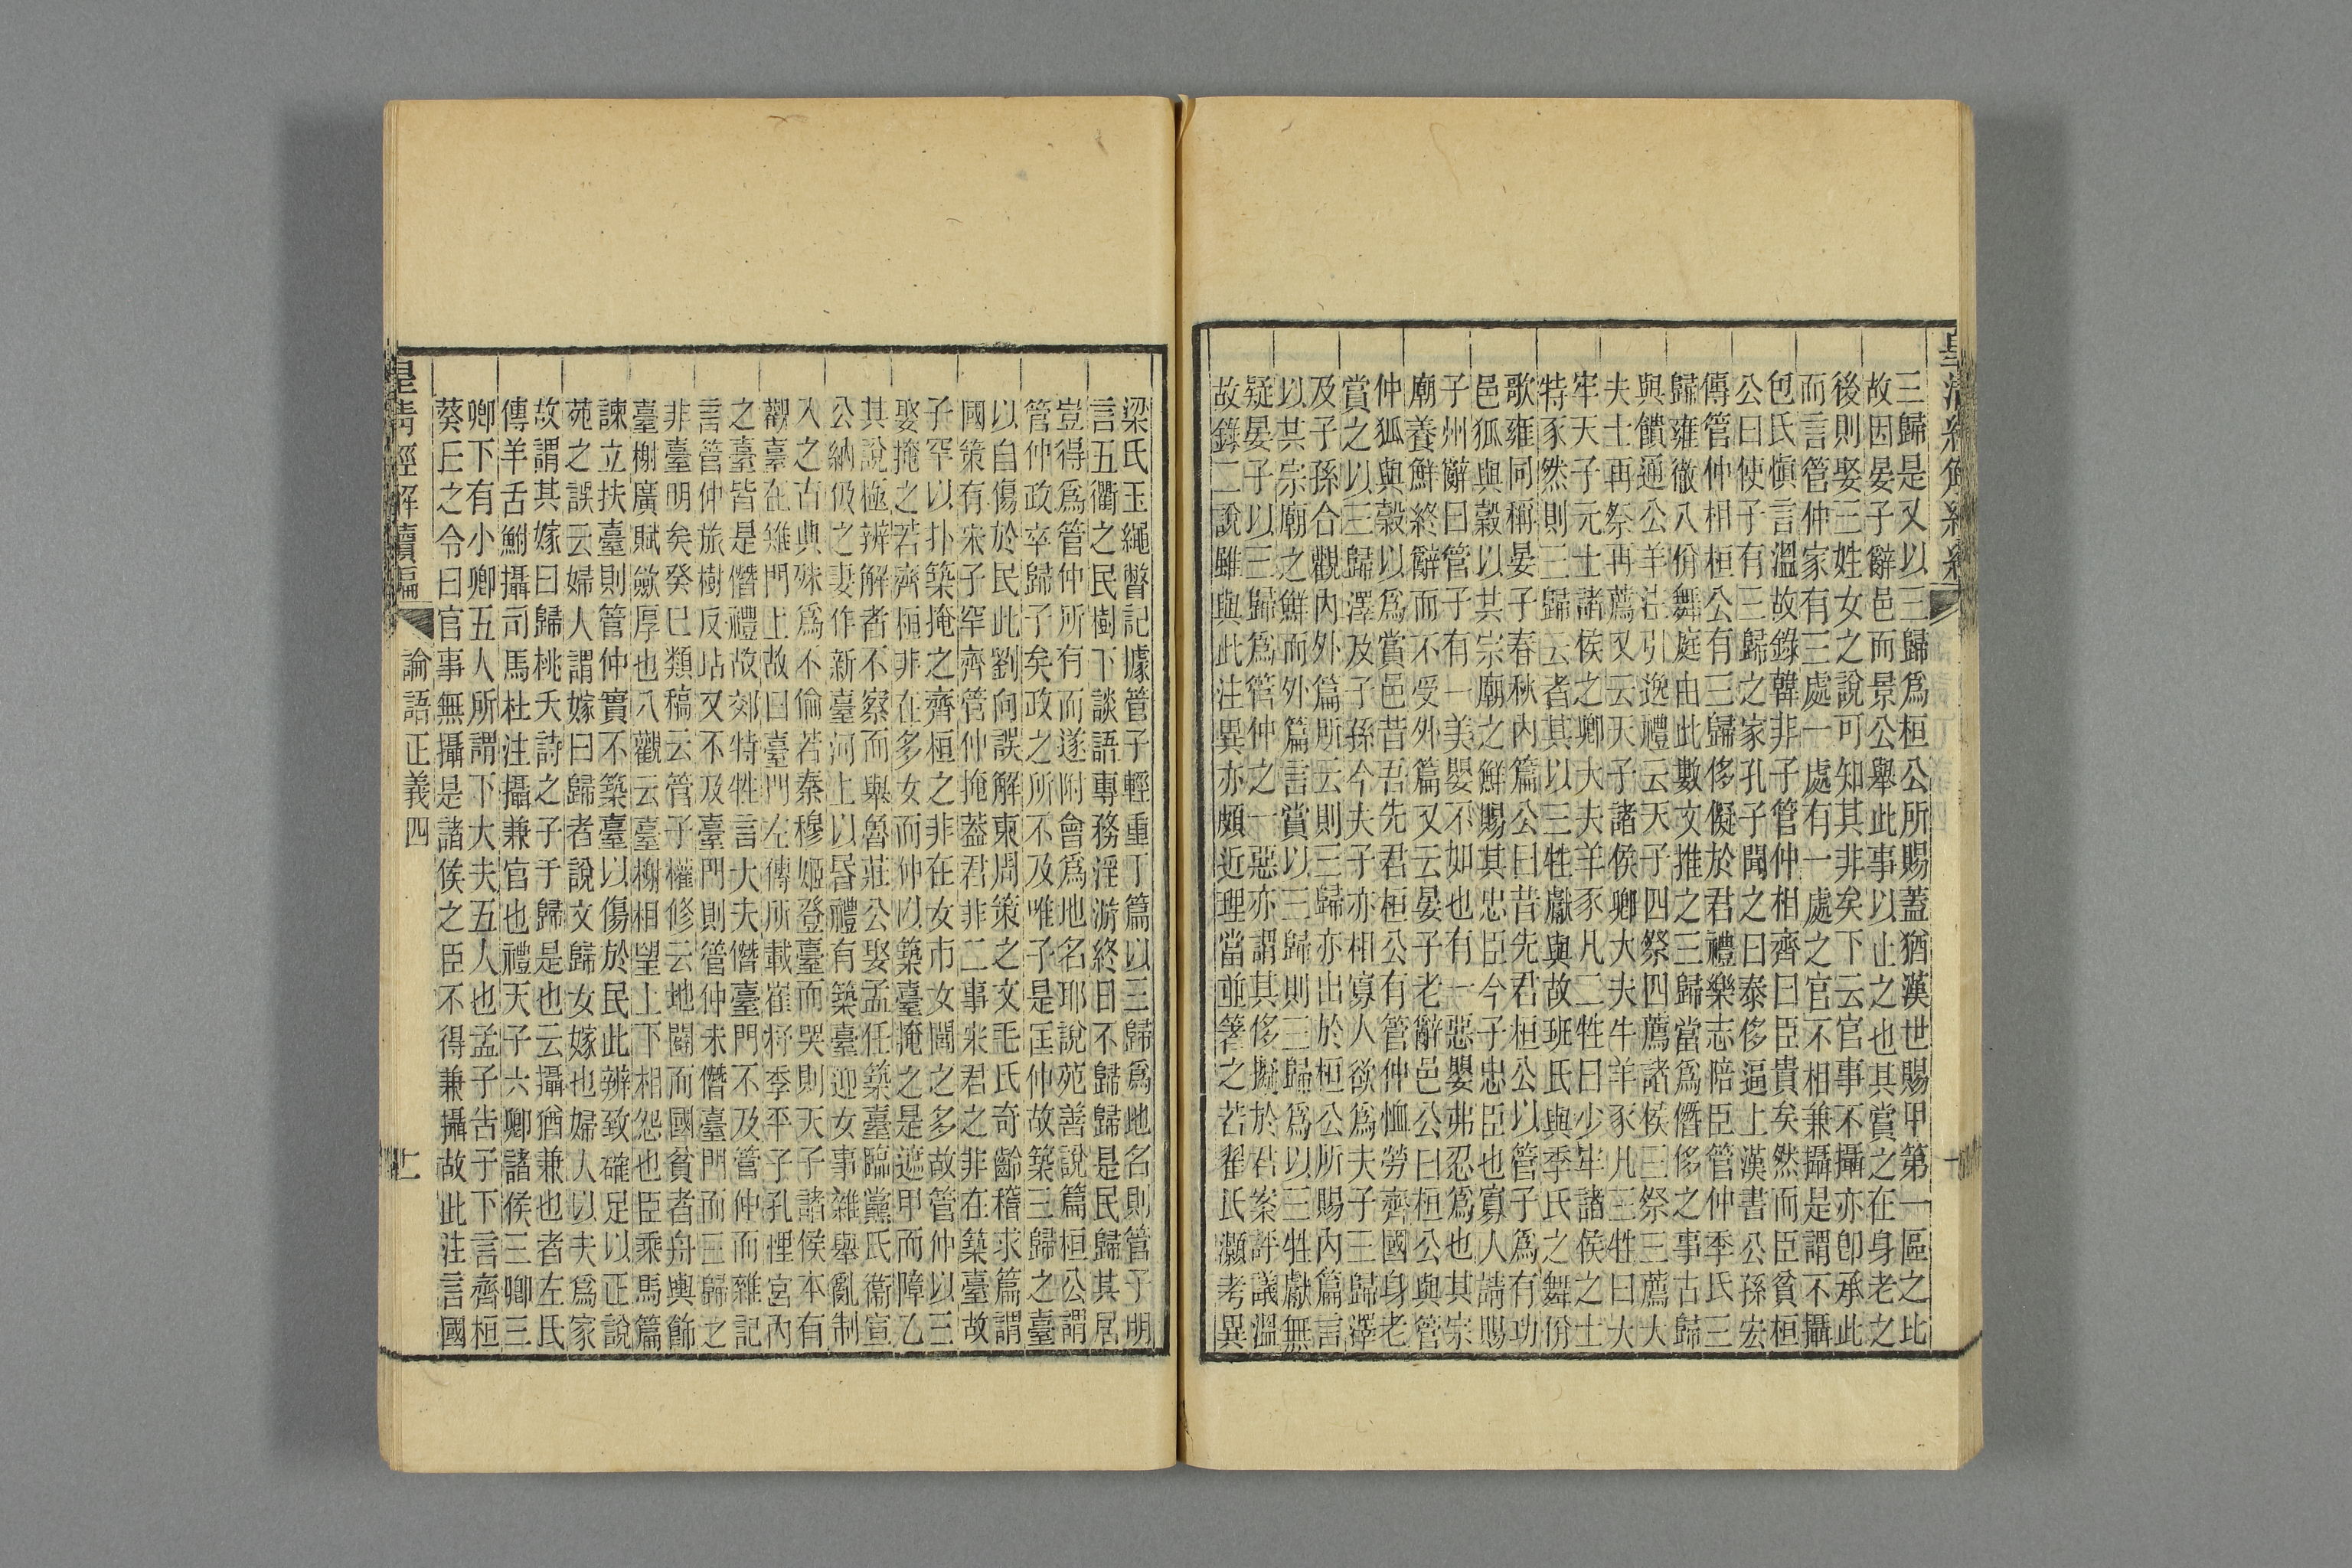 三歸是又以三歸爲桓公所賜蓋猶漢世賜甲第一區之比
故因晏子辭邑而景公舉此事以止之也其賞之在身老之
後則娶三姓女之說可知其非矣下云官事不攝亦卽承此
而言管仲家有三處一處有一處之官不相兼攝是謂不攝
包氏愼言溫故錄韓非子管仲相齊曰臣貴矣然而臣貧桓
公曰使子有三歸之家孔子聞之曰泰侈逼上漢書公孫宏
傳管仲相桓公有三歸侈儗於君禮樂志陪臣管仲季氏三
歸雍徹八佾舞庭由此數文推之三歸當爲僭侈之事古歸
與饋通公羊注引逸禮云天子四祭四薦諸侯三祭三薦大
夫士再祭再薦又云天子諸侯卿大夫牛羊豕凡三牲曰大
牢天子元士諸侯之卿大夫羊豕凡二牲曰少牢諸侯之士
特豕然則三歸云者其以三牲獻與故班氏與季氏之舞佾
歌雍同稱晏子春秋內篇公曰昔先君桓公以管子爲有功
邑狐與穀以其宗廟之鮮賜其忠臣今子忠臣也寡人請賜
子州辭曰管子有一美嬰不如也有一惡嬰弗忍爲也其宗
廟養鮮終辭而不受外篇又云晏子老辭邑公曰桓公與管
仲狐與穀以爲賞邑昔吾先君桓公有管仲恤勞齊國身老
賞之以三歸澤及子孫今夫子亦相寡人欲爲夫子三歸澤
及子孫合觀內外篇所云則三歸亦出於桓公所賜內篇言
以其宗廟之鮮而外篇言賞以三歸則三歸爲以三牲獻無
疑晏子以三歸爲管仲之一惡亦謂其侈擬於君案評議溫
故錄二說雖與此注異亦頗近理當並箸之若翟氏灝考異
梁氏玉繩瞥記據管子輕重丁篇以三歸爲地名則管子明
言五衢之民樹下談語專務淫游終日不歸歸是民歸其居
豈得爲管仲所有而遂附會爲地名耶說苑善說篇桓公謂
管仲政卒歸子矣政之所不及唯子是匡仲故築三歸之臺
以自傷於民此劉向誤解東周策之文毛氏奇齡稽求篇謂
國策有宋子罕齊管仲掩蓋君非二事宋君之非在築臺故
子罕以扑築掩之齊桓之非在女市女閭之多故管仲以三
娶掩之若齊桓非在多女而仲以築臺掩之是遮甲而障乙
其說極辨解者不察而舉魯莊公娶孟任築臺臨黨氏衞宣
公納伋之妻作新臺河上以昏禮有築臺迎女事雜舉亂制
入之古典殊爲不倫若秦穆姬登臺而哭則天子諸侯本有
觀臺在雉門上故曰臺門左傳所載崔杼季平子孔悝宮內
之臺皆是僭禮故郊特牲言大夫僭臺門不及管仲而雜記
言管仲旅樹反坫又不及臺門則管仲未僭臺門而三歸之
非臺明矣癸巳類稿云管子權修云地闢而國貧者舟輿飾
臺榭廣賦斂厚也八觀云臺榭相望上下相怨也臣乘馬篇
諫立扶臺則管仲實不築臺以傷於民此辨致確足以正說
苑之誤云婦人謂嫁曰歸者說文歸女嫁也婦人以夫爲家
故謂其嫁曰歸桃夭詩之子于歸是也云攝猶兼也者左氏
傳羊舌鮒攝司馬杜注攝兼官也禮天子六卿諸侯三卿三
卿下有小卿五人所謂下大夫五人也孟子告子下言齊桓
葵丘之令曰官事無攝是諸侯之臣不得兼攝故此注言國
皇淸經解續編
論語正義四